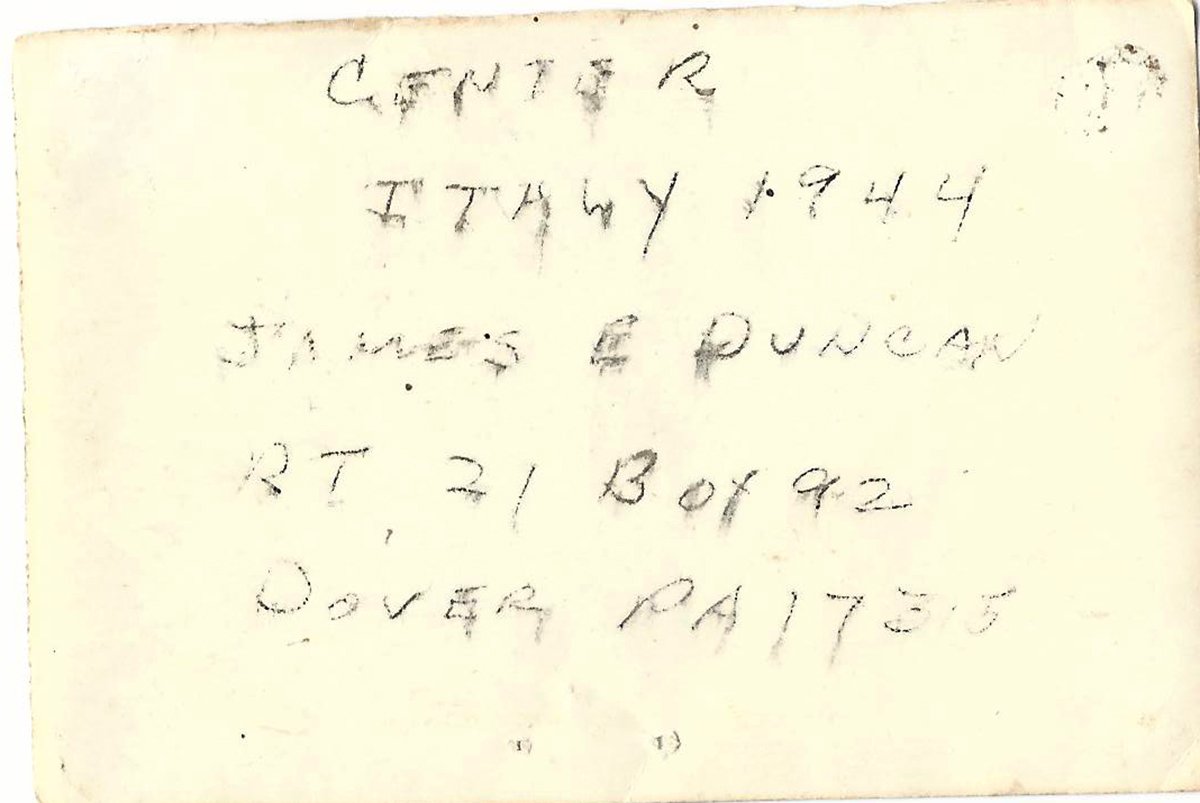 CENTER
ITALY 1944
JAMES E DUNCAN
RT 21 BOX 92
DOVER PA 17315